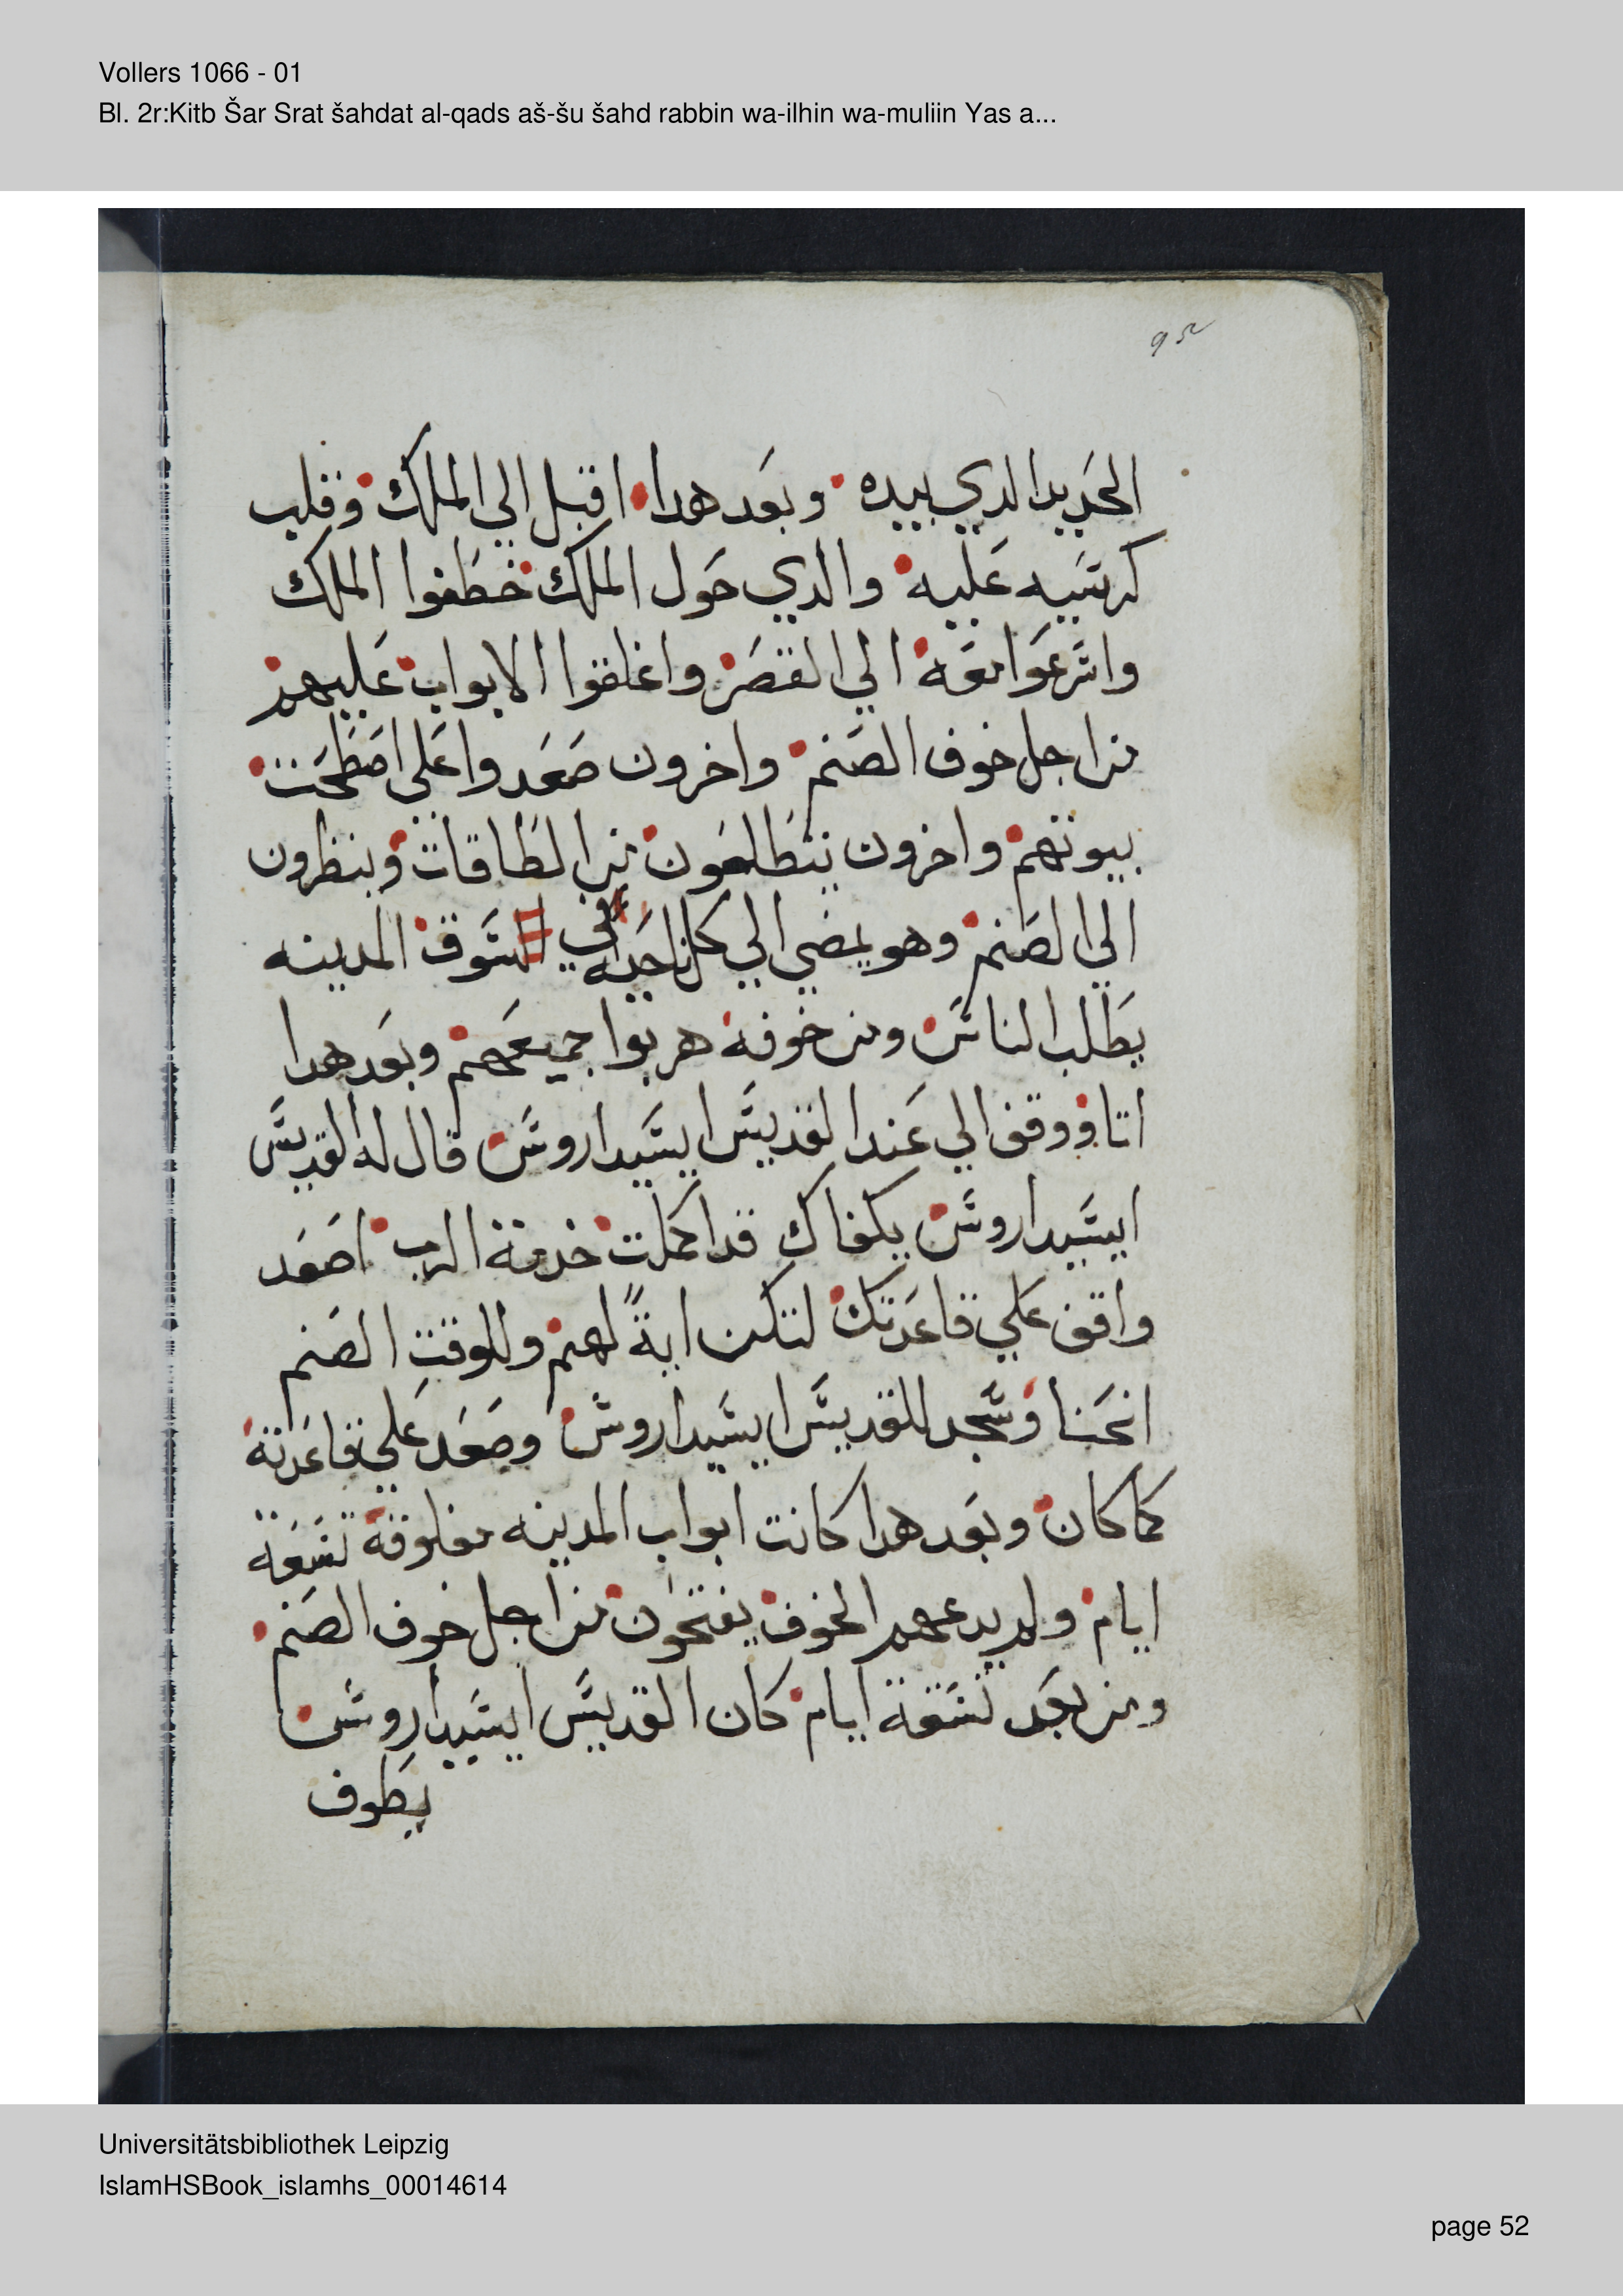 Vollers 1066 - 01
Bl. 2r:Kitb Šar Srat šahdat al-qads aš-šu šahd rabbin wa-ilhin wa-muliin Yas a...
الحديد الدي بيده وبعد هدا اقبل الي الملك وقلب
كرسيه عليه والدي حول الملك خطفوا الملك
واسرعوا معه الي القصر واغلقوا الابواب عليهم
من اجل خوف الصنم واخرون صعدوا علي اصطحت
بيوتهم واخرون يتطلعون من الطاقات وينظرون
الي الصنم وهو يمضي الي كل ناحيه في السوق المدينه
يطلب الناس ومن خوفه هربوا جميعهم وبعد هدا
اتا ووقف الي عند القديس ايسيداروس قال له القديس
ايسيداروس يكفاك قد اكملت خدمة الرب اصعد
واقف علي قاعدتك لتكن اية لهم وللوقت الصنم
انحنا وسجد للقديس ايسيداروس وصعد علي قاعدتة
كما كان وبعد هدا كانت ابواب المدينه مغلوقة تسعة
ايام ولم يدعهم الخوف يفتحون من اجل خوف الصنم
ومن بعد تسعة ايام كان القديس ايسيداروس
يطوف
Universitätsbibliothek Leipzig
IslamHSBook_islamhs_00014614
page 52